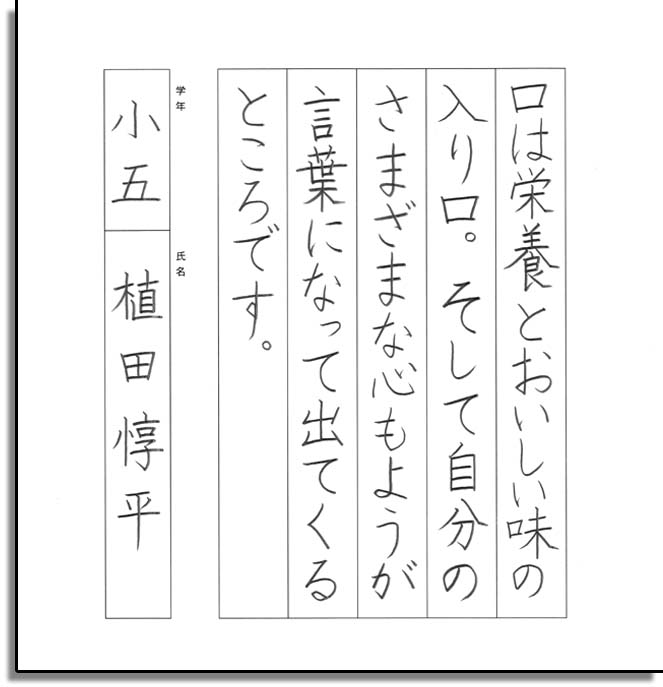 口は栄養とおいしい味の
入り口。そして自分の
さまざまな心もようが
言葉になって出てくる
ところです。
学年
小五
氏名
植田惇平